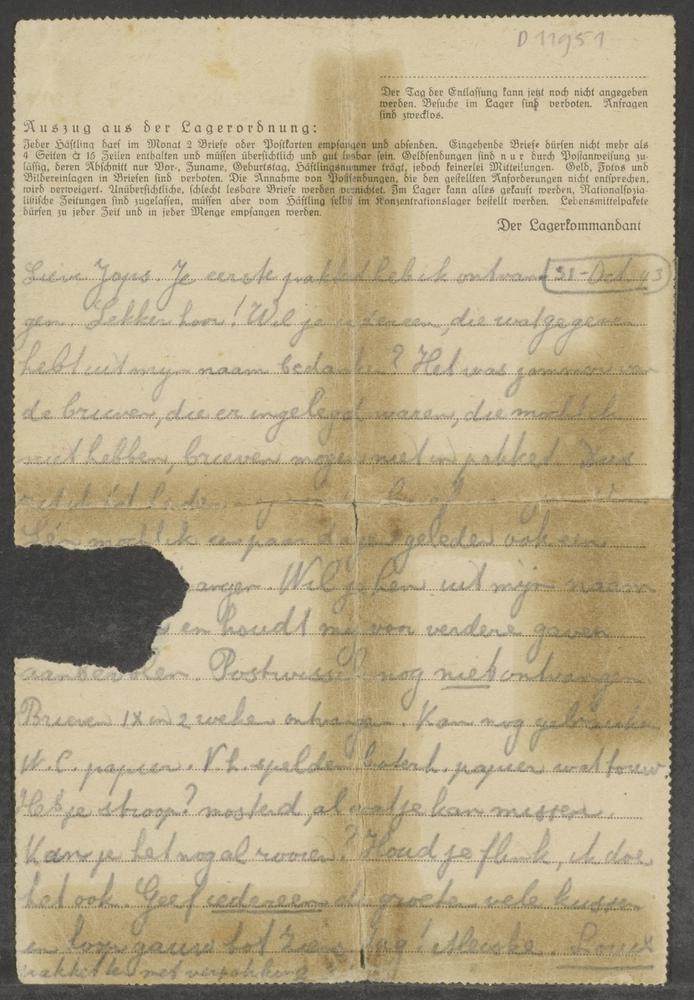 D 11951
Der Tag der Entlassung kann jetzt noch nicht angegeben
werden. Besuche im Lager sind verboten. Anfragen
sind zwecklos.
Auszug aus der Lagerordnung:
Jeder Häftling darf im Monat 2 Briefe oder Postkarten empfangen und absenden. Eingehende Briefe dürfen nicht mehr als
4 Seiten à 15 Zeilen enthalten und müssen übersichtlich und gut lesbar sein. Geldsendungen sind nur durch Postanweisung zu-
lässig, deren Abschnitt nur Vor-, Zuname, Geburtstag, Häftlingsnummer trägt, jedoch keinerlei Mitteilungen. Geld, Fotos und
Bildereinlagen in Briefen sind verboten. Die Annahme von Postsendungen, die den gestellten Anforderungen nicht entsprechen,
wird verweigert. Unübersichtliche, schlecht lesbare Briefe werden vernichtet. Im Lager kann alles gekauft werden. Nationalsozia-
listische Zeitungen sind zugelassen, müssen aber vom Häftling selbst im Konzentrationslager bestellt werden. Lebensmittelpakete
dürfen zu jeder Zeit und in jeder Menge empfangen werden.
Der Lagerkommandant
Lieve Jops. Je eerste pakket heb ik ontvan 31-Oct 43
gen. Lekker hoor! Wil je iedereen, die wat gegeven
hebt uit mijn naam bedanken? Het was jammer van
de brieven, die er ingelegd waren, die mocht ik
niet hebben, brieven mogen niet in pakket. Dus
mocht ik een paar dagen geleden ook een
angen. Wil je hen uit mijn naam
en houdt mij voor verdere gaven
aanbevolen. Postwissel nog niet ontvangen
Brieven 1X in 2 weken ontvangen. Kan nog gebruiken
W.C. papier. Vh. spelden boterh. papier wat touw.
Heb je stroop? mosterd, al wat je kan missen.
Kan je het nogal rooien? Houd je flink, ik doe
het ook. Geef iedereen de groeten vele kussen
en hoor gauw tot ziens dag! Louis
met verpakking